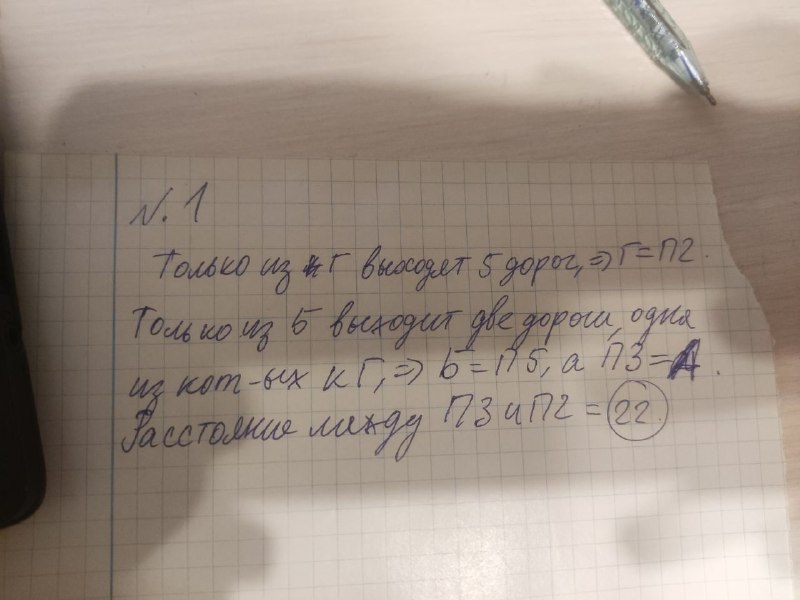 №. 1
Только из Г выходят 5 дорог, ⇒ Г = П2.
Только из Б выходит две дороги, одна
из кот-ых к Г, ⇒ Б = П5, а П3 = А.
Расстояние между П3 и П2 = 22.